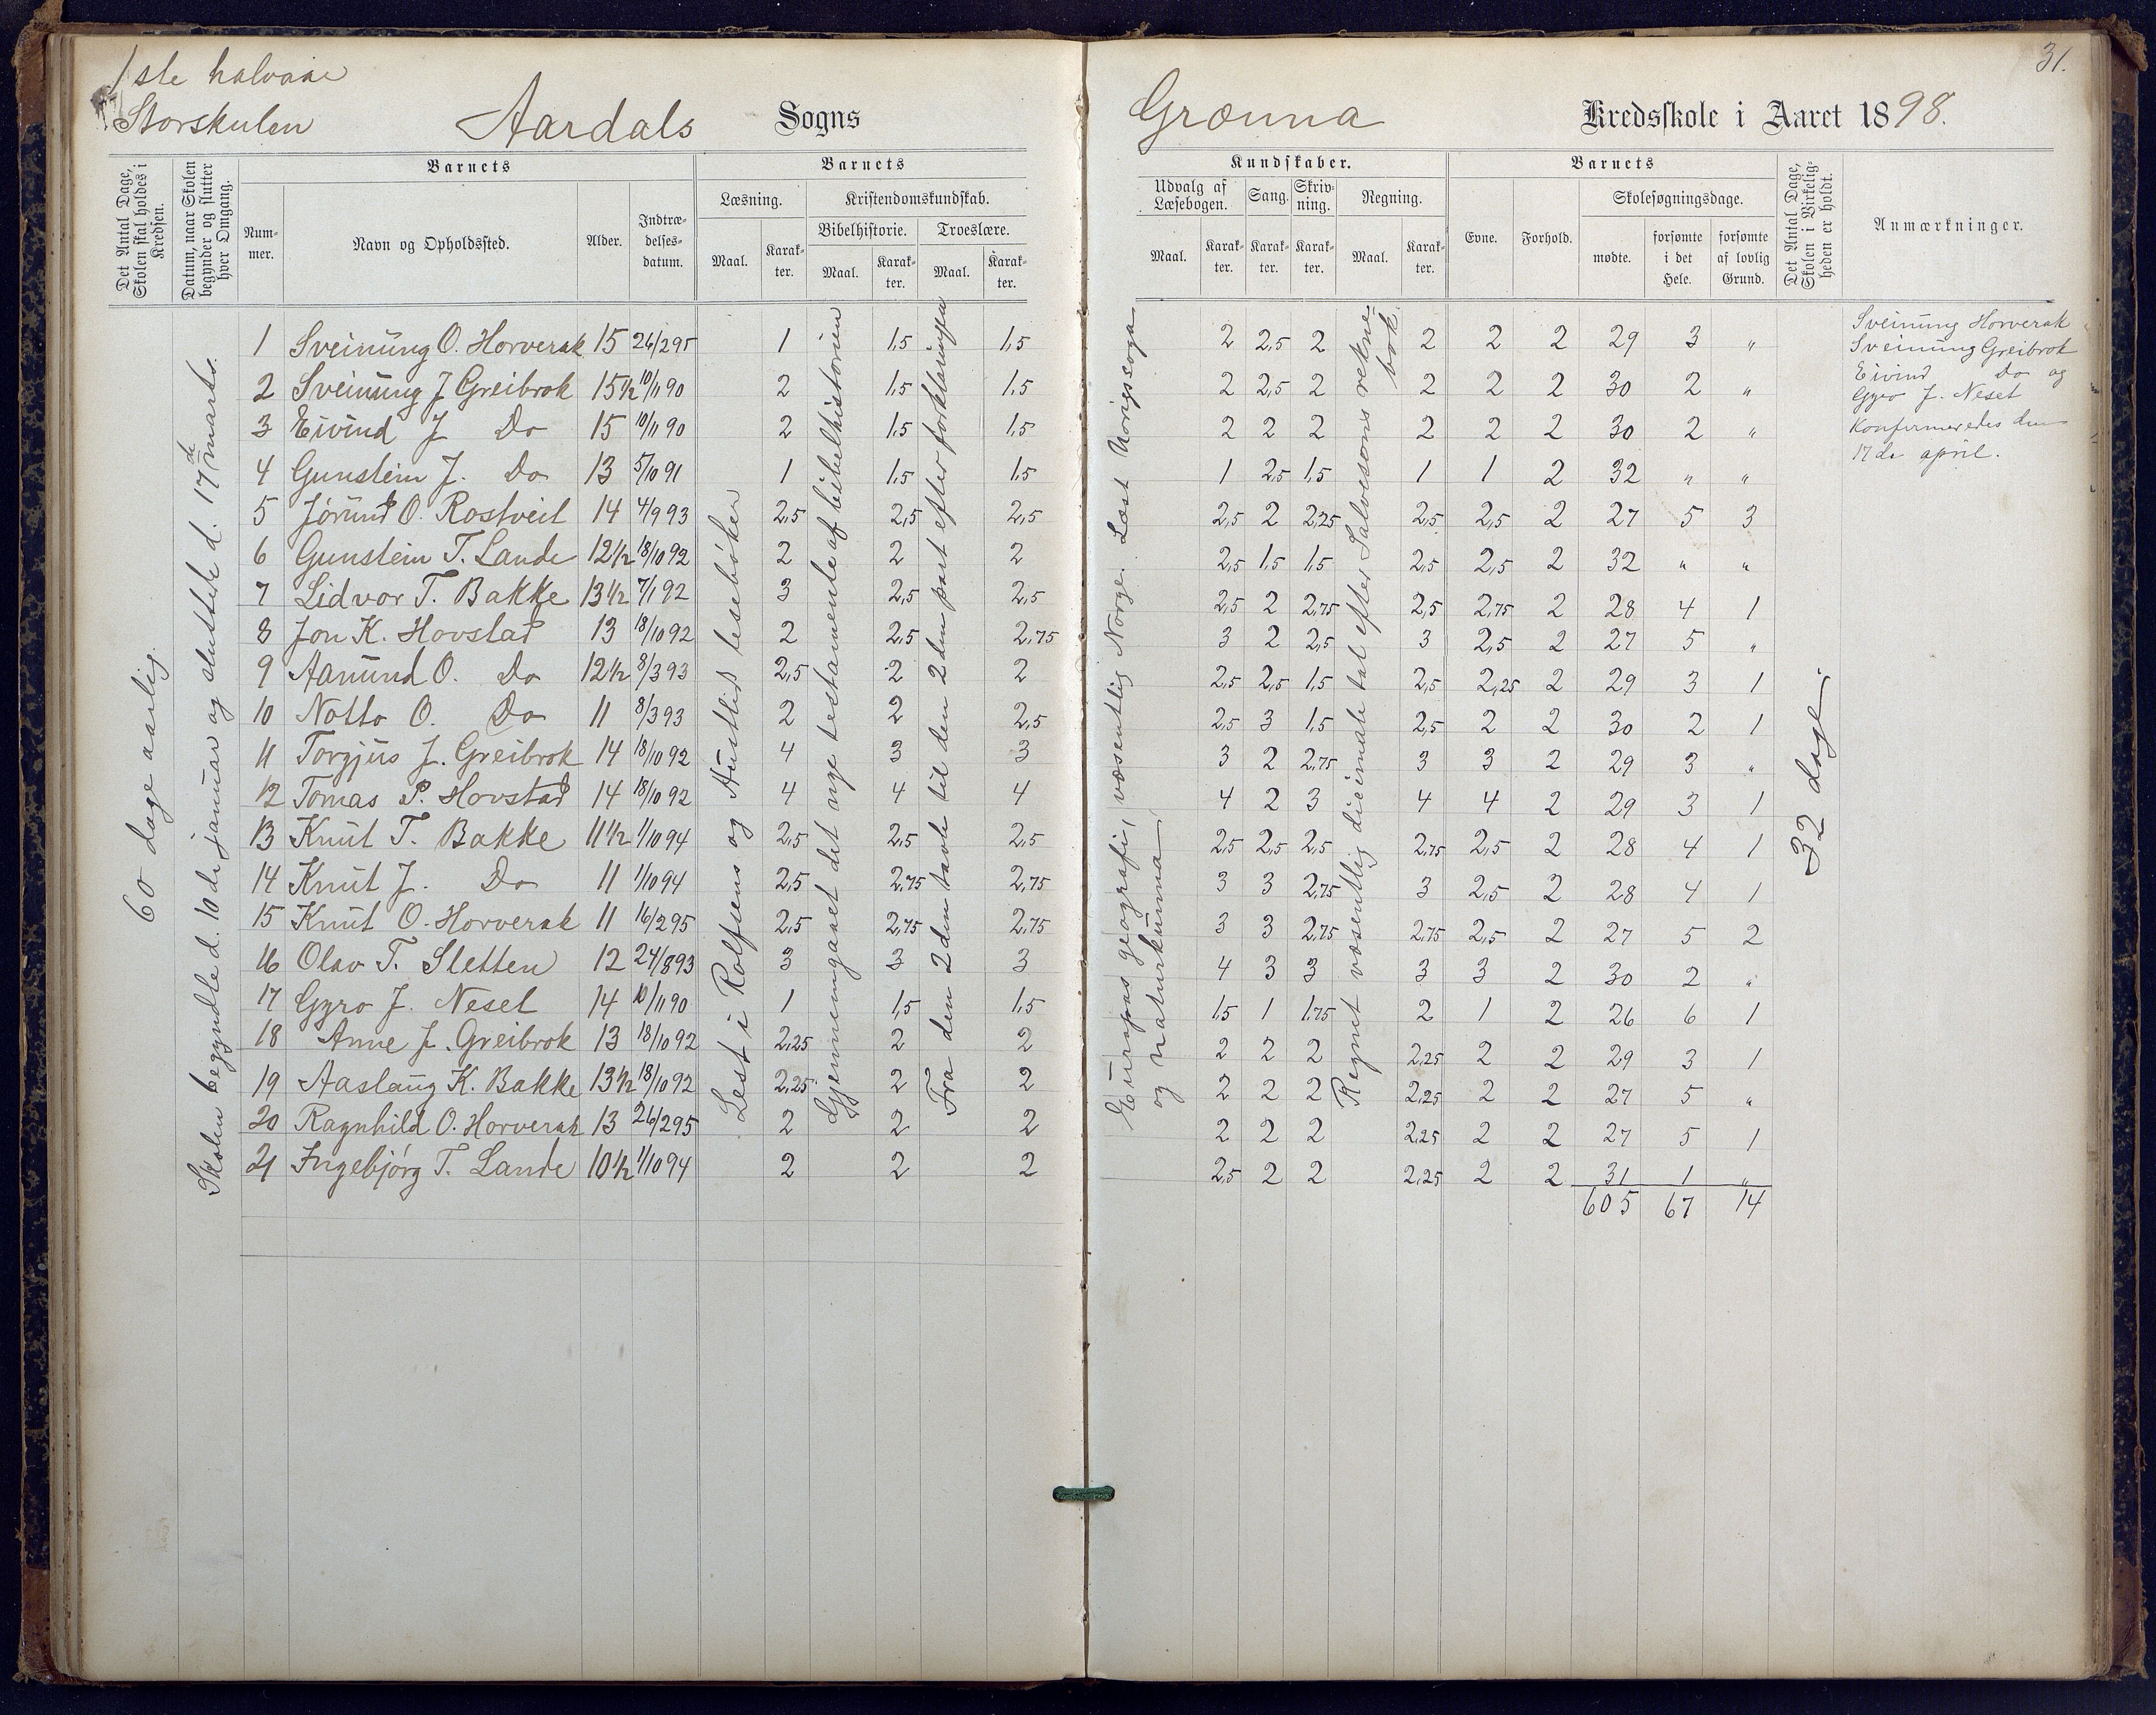 1ste halvaar
Storskulen
Aardals Sogns
Grønna Kredsskole i Aaret 1898.
31.
Det Antal Dage, Skolen skal holdes i Kredsen.
Datum, naar Skolen begynder og slutter hver Omgang.
Barnets
Nummer.
Navn og Opholdssted.
Alder.
Indtrædelsesdatum.
Barnets
Læsning.
Maal.
Karakter.
Kristendomskundskab.
Bibelhistorie.
Maal.
Karakter.
Troeslære.
Maal.
Karakter.
Kundskaber.
Udvalg af Læsebogen.
Maal.
Karakter.
Sang.
Karakter.
Skrivning.
Karakter.
Regning.
Maal.
Karakter.
Barnets
Evne.
Forhold.
Skolesøgningsdage.
mødte.
forsømte i det Hele.
forsømte af lovlig Grund.
Det Antal Dage, Skolen i Virkeligheden er holdt.
Anmærkninger.
60 dage aarlig.
Skolen begyndte d. 10de januar og sluttede d. 17de marts.
Lest i Rolfsens og Austlids lesebøker
Gjennemgaaet det nye testamente af bibelhistorien
Fra den 2den tavle til den 2den part efter forklaringen
Europas geografi, væsentlig Norge. Læst Norigssoga
og naturkunna
Regnet væsentlig dicimale tal efter Salvesons reknebok
32 dage.
1 Sveinung O. Horverak 15 26/2 95 1 1,5 1,5 2 2,5 2 2 2 2 29 3 "
2 Sveinung J Greibrok 15 1/2 10/11 90 2 1,5 1,5 2 2,5 2 2 2 2 30 2 "
3 Eivind J Do 15 10/11 90 2 1,5 1,5 2 2 2 2 2 2 30 2 "
4 Gunstein J. Do 13 5/10 91 1 1,5 1,5 1 2,5 1,5 1 1 2 32 " "
5 Jørund O. Rostveit 14 4/9 93 2,5 2,5 2,5 2,5 2 2,25 2,5 2,5 2 27 5 3
6 Gunstein T. Lande 12 1/2 18/10 92 2 2 2 2,5 1,5 1,5 2,5 2,5 2 32 " "
7 Lidvor T. Bakke 13 1/2 7/1 92 3 2,5 2,5 2,5 2 2,75 2,5 2,75 2 28 4 1
8 Jon K. Hovstad 13 18/10 92 2 2,5 2,75 3 2 2,5 3 2,5 2 27 5 "
9 Aamund O. Do 12 1/2 8/3 93 2,5 2 2 2,5 2,5 1,5 2,5 2,25 2 29 3 1
10 Notto O. Do 11 8/3 93 2 2 2,5 2,5 3 1,5 2,5 2 2 30 2 1
11 Torgjus J. Greibrok 14 18/10 92 4 3 3 3 2 2,75 3 3 2 29 3 "
12 Tomas P. Hovstad 14 18/10 92 4 4 4 4 2 3 4 4 2 29 3 1
13 Knut T. Bakke 11 1/2 1/10 94 2,5 2,5 2,5 2,5 2,5 2,5 2,75 2,5 2 28 4 1
14 Knut J. Do 11 1/10 94 2,5 2,75 2,75 3 3 2,75 3 2,5 2 28 4 1
15 Knut O. Horverak 11 16/2 95 2,5 2,75 2,75 3 3 2,75 2,75 2,5 2 27 5 2
16 Olav T. Sletten 12 24/8 93 3 3 3 4 3 3 3 3 2 30 2 "
17 Gyro J. Neset 14 10/11 90 1 1,5 1,5 1,5 1 1,75 2 1 2 26 6 1
18 Anne J. Greibrok 13 18/10 92 2,25 2 2 2 2 2 2,25 2 2 29 3 1
19 Aaslaug K. Bakke 13 1/2 18/10 92 2,25 2 2 2 2 2 2,25 2 2 27 5 "
20 Ragnhild O. Horverak 13 26/2 95 2 2 2 2 2 2 2,25 2 2 27 5 1
21 Ingebjørg T. Lande 10 1/2 1/10 94 2 2 2 2,5 2 2 2,25 2 2 31 1 "
605 67 14
Sveinung Horverak
Sveinung Greibrok
Eivind Do og
Gyro J. Neset
konfirmeredes den
17de april.